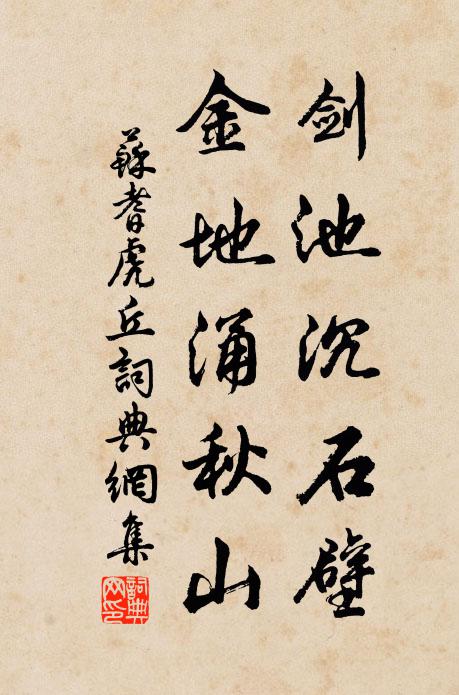 剑池沉石壁
金地涌秋山
蘇耆虎丘詞典網集
詞典網印